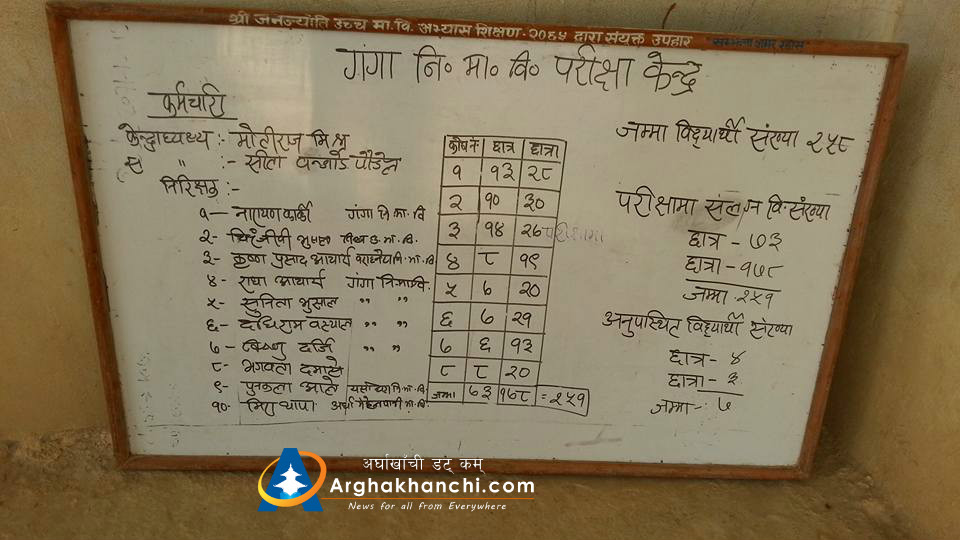 श्री जनज्योति उच्च मा.वि. अभ्यास शिक्षण-२०६५ द्वारा संयुक्त उपहार
गंगा नि० मा० वि० परीक्षा केन्द्र
कर्मचारी
केन्द्राध्यक्ष :- मोतीराज मिश्र
स " :- सीता वन्जाडे पौडेल
निरिक्षक :-
१- नारायण कार्की गंगा नि.मा.वि
२- चिरंजीवी भुसाल
३- कृष्ण प्रसाद आचार्य नि.मा.वि
४- राधा आचार्य गंगा नि.मा.वि.
५- सुनिता भुसाल " "
६- दधिराम बस्याल " "
७- विष्णु दर्जि " "
८- भगवती दमाई
९- पुनकला आले नि.मा.वि.
१०- थापा मा.वि.
कोष नं छात्र छात्रा
१ १३ २८
२ १० ३०
३ १४ २७ परीक्षामा
४ ८ १९
५ ७ २०
६ ७ २१
७ ६ १३
८ ८ २०
जम्मा ७३ १७८ = २५१
जम्मा विद्यार्थी संख्या २५८
परीक्षामा संलग्न वि. संख्या
छात्र - ७३
छात्रा - १७८
जम्मा २५१
अनुपस्थित विद्यार्थी संख्या
छात्र - ४
छात्रा - ३
जम्मा - ७
अर्घाखाँची डट् कम्
Arghakhanchi.com
News for all from Everywhere